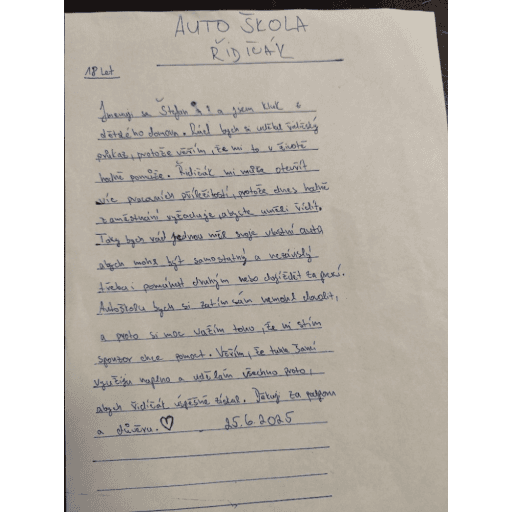 AUTO ŠKOLA
ŘIDIČÁK
18 Let
Jmenuji se Štefan a jsem kluk z
dětského domova. Rád bych si udělal řidičský
průkaz, protože věřím, že mi to v životě
hodně pomůže. Řidičák mi může otevřít
víc pracovních příležitostí, protože dnes hodně
zaměstnání vyžaduje, abyste uměli řídit.
Taky bych rád jednou měl svoje vlastní auto,
abych mohl být samostatný a nezávislý
třeba i pomáhat druhým nebo dojíždět za prací.
Autoškolu bych si zatím sám nemohl dovolit,
a proto si moc vážím toho, že mi s tím
sponzor chce pomoct. Věřím, že tuhle šanci
využiju naplno a udělám všechno proto,
abych řidičák úspěšně získal. Děkuji za podporu
a důvěru. ♡ 25.6.2025